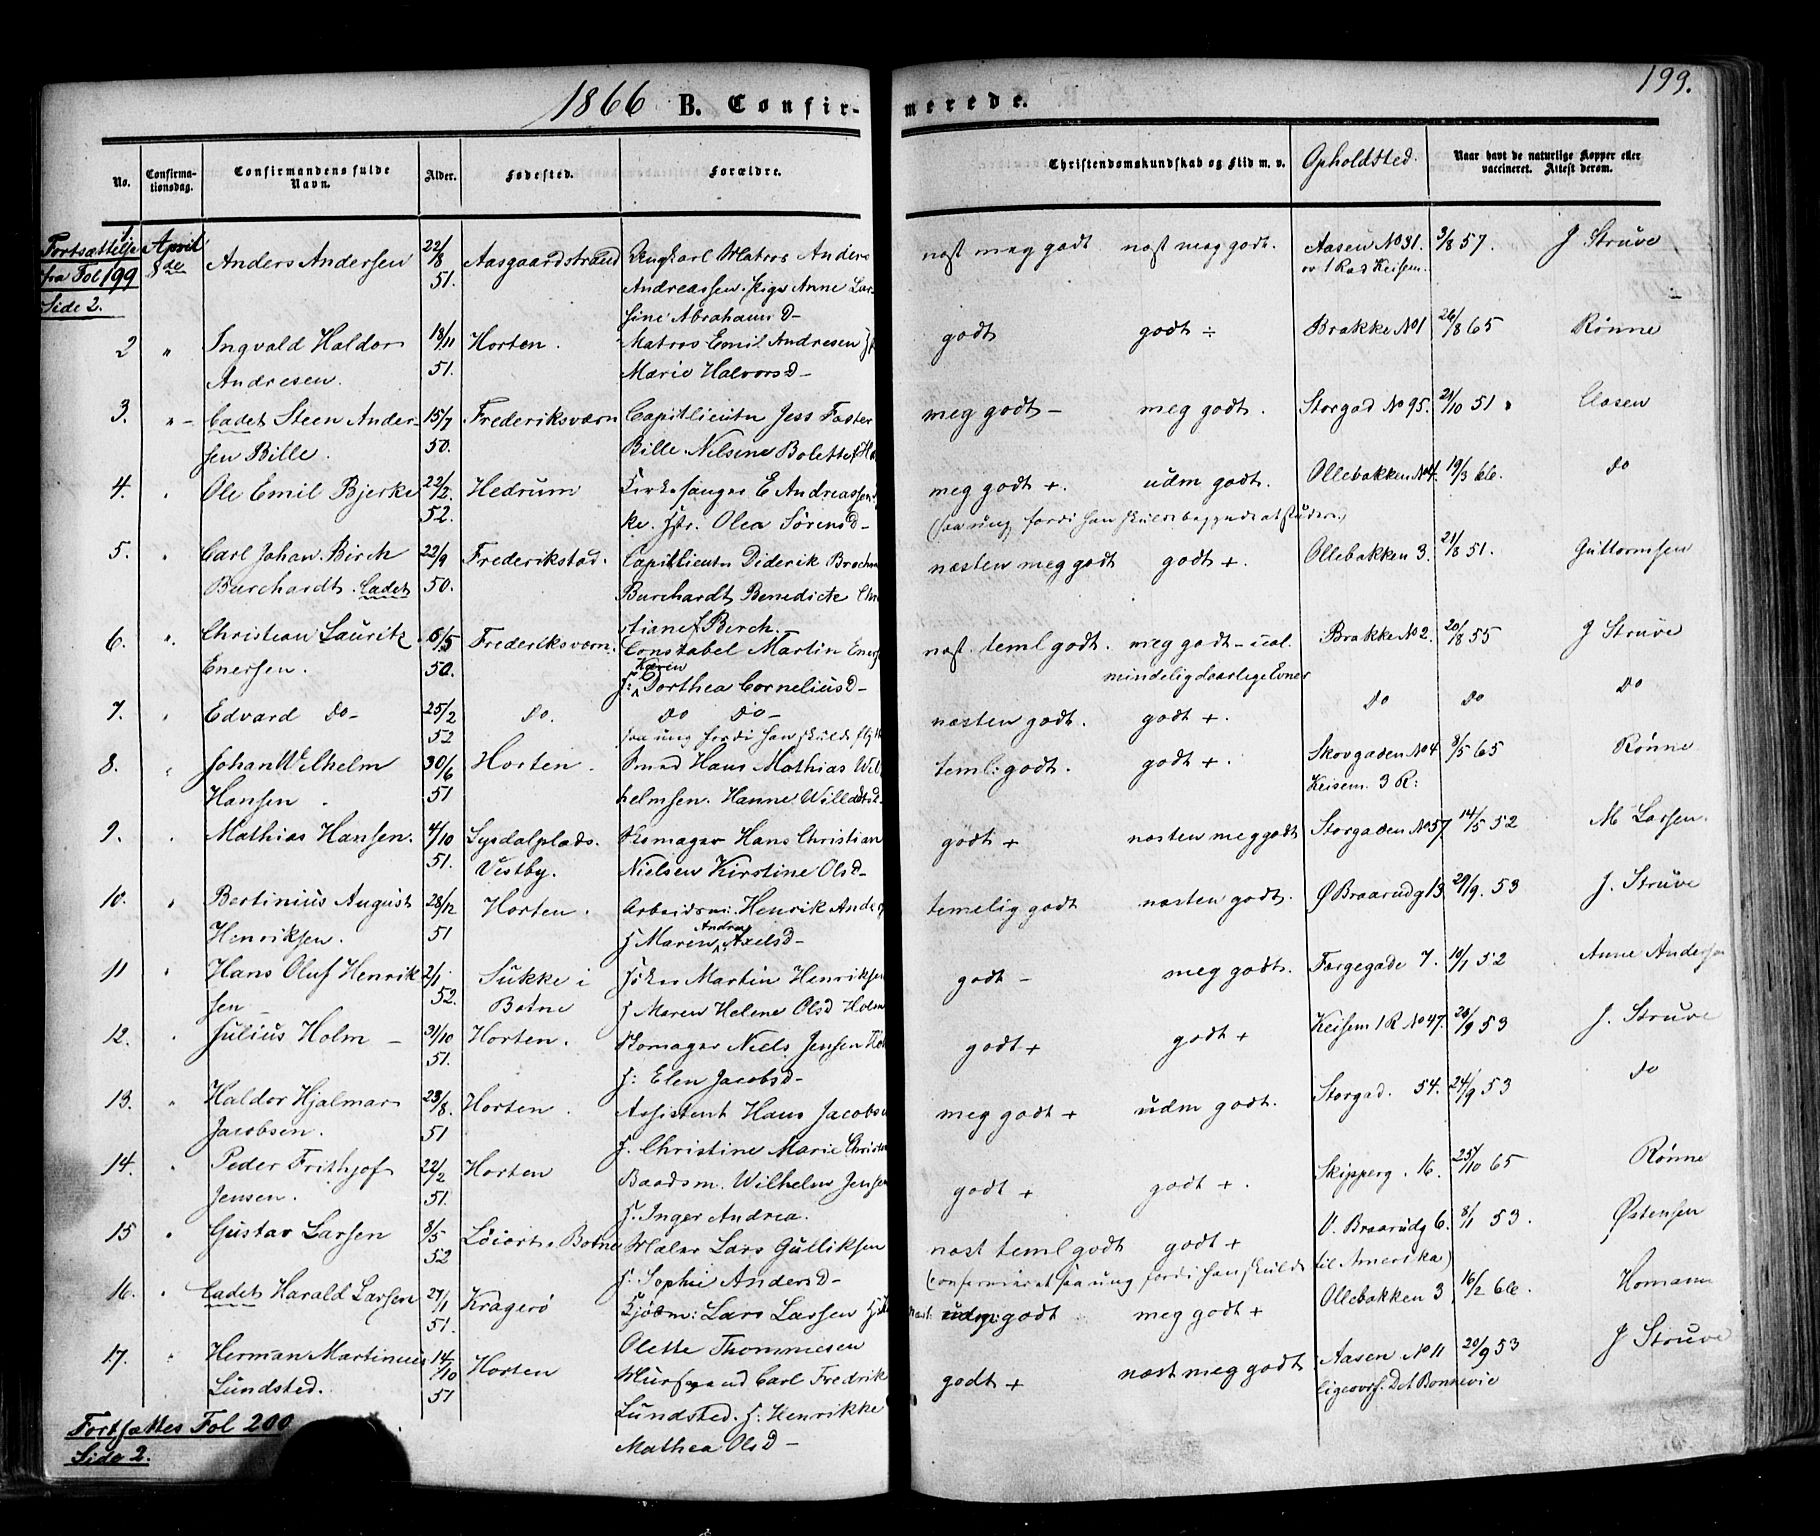 1866 B. Confirmerede. 199.
No. Confirmationsdag. Confirmandens fulde Navn. Alder. Fødested. Forældre. Christendomskundskab og Flid m. v. Opholdsted. Naar havt de naturlige Kopper eller vaccineret. Attest derom.
Fortsættelse fra Fol 199 Side 2.
1. April 8de Anders Andersen 22/8 51. Aasgaardstrand Ungkarl Matros Anders næst meg godt næst meg godt. Aasen No 31. 3/8 57. J Struve
Andreassen. Pige Anne Lar- ov 1 Rad Keisem.
sine Abrahams D-
2 " Ingvald Haldor 18/11 51. Horten. Matros Emil Andresen godt godt ÷ Brakke No 1 26/8 65 Rønne
Andresen. Marie Halvors D-
3. "- Cadet Steen Ander- 15/7 50. Frederiksværn Capitlieutn Jess Faster meg godt - meg godt. Storgad No 95. 21/10 51 Aasen
sen Bille. Bille Nelsine Bolette
4. " Ole Emil Bjerke 22/2 52. Hedrum Kirkesanger E Andreassen meg godt +. udm godt. Ollebakken No 4. 19/3 66. do
ke. Olea Sørens D- (saa ung fordi han skulde begynde at studere)
5. " Carl Johan Birch 22/9 50. Frederikstad. Capitlieutn Diderik næsten meg godt godt +. Ollebakken 3. 21/8 51. Guttormsen
Burchardt. Cadet Burchardt Benedicte
tiane f Birch.
6. " Christian Lauritz 6/5 50. Frederiksværn. Constabel Martin næst. teml godt. meg godt - ual. Brakke No 2. 20/8 55 J Struve
Enersen. f: Karen Dorthea Cornelius D- mindelig daarlige Evner
7. " Edvard Do- 25/2 52 Do. Do Do- næsten godt. godt +. do do do
saa ung fordi han skulde
8. " Johan Wilhelm 30/6 51 Horten. Smed Hans Mathias Wil teml: godt. godt +. Skovgaden No 4 8/5 65 Rønne
Hansen. helmsen. Hanne Keisem. 3 R:
9. " Mathias Hansen. 4/10 51. Sysdalplads. Vestby. Skomager Hans Christian godt + næsten meg godt Storgaden No 57 14/5 52 M Larsen.
Nielsen Kirstine Ols D-
10. " Bertinius August 28/12 51 Horten. Arbeidsm: Henrik Anders temelig godt næsten godt. Ø Braarudg 13 29/9. 53 J. Struve
Henriksen. f Maren Andrea Axels D-
11 " Hans Oluf Henrik 2/1. 52. Sukke i Botne Martin Henriksen godt - meg godt. Torgegade 7. 10/1 52 Anne Andersen
sen - f Maren Helene Olsd Holm
12. " Julius Holm - 31/10 51. Horten. Skomager Niels Jensen godt + godt + Keisem 1 R No 47. 26/9 53 J. Struve
f: Elen Jacobs D-
13. " Haldor Hjalmar 23/8. 51 Horten. Assistent Hans Jacobsen meg godt + udm godt. Storgad. 54. 24/9 53 do
Jacobsen. f. Christine Marie
14. " Peder Frithjof 22/2 51. Horten Baadsm. Wilhelm Jensen godt + godt +. Skipperg. 16. 25/10 65 Rønne
Jensen. f. Inger Andrea.
15 " Gustav Larsen 8/5 52 Botne Maler Lars Gulliksen næst teml godt godt + V. Braarudg 6. 8/1 53. Østensen
f. Sophie Anders D- (confirmeret saa ung fordi han skulde til Amerika)
16. " Cadet Harald Larsen 27/1 51. Kragerø Kjøbm: Lars Larsen næst: udm: godt meg godt + Ollebakken 3 16/2 66. Homann
Olette Thommesen
17. " Herman Martinius 14/10 51 Horten Murssvend Carl Fredrik godt + næst meg godt Aasen No 11 20/9 53 J Struve
Lundsted. Lundsted. f: Henrikke ligeovrf. Det Bonnevie
Mathea Ols D-
Fortsættes Fol 200
Side 2.